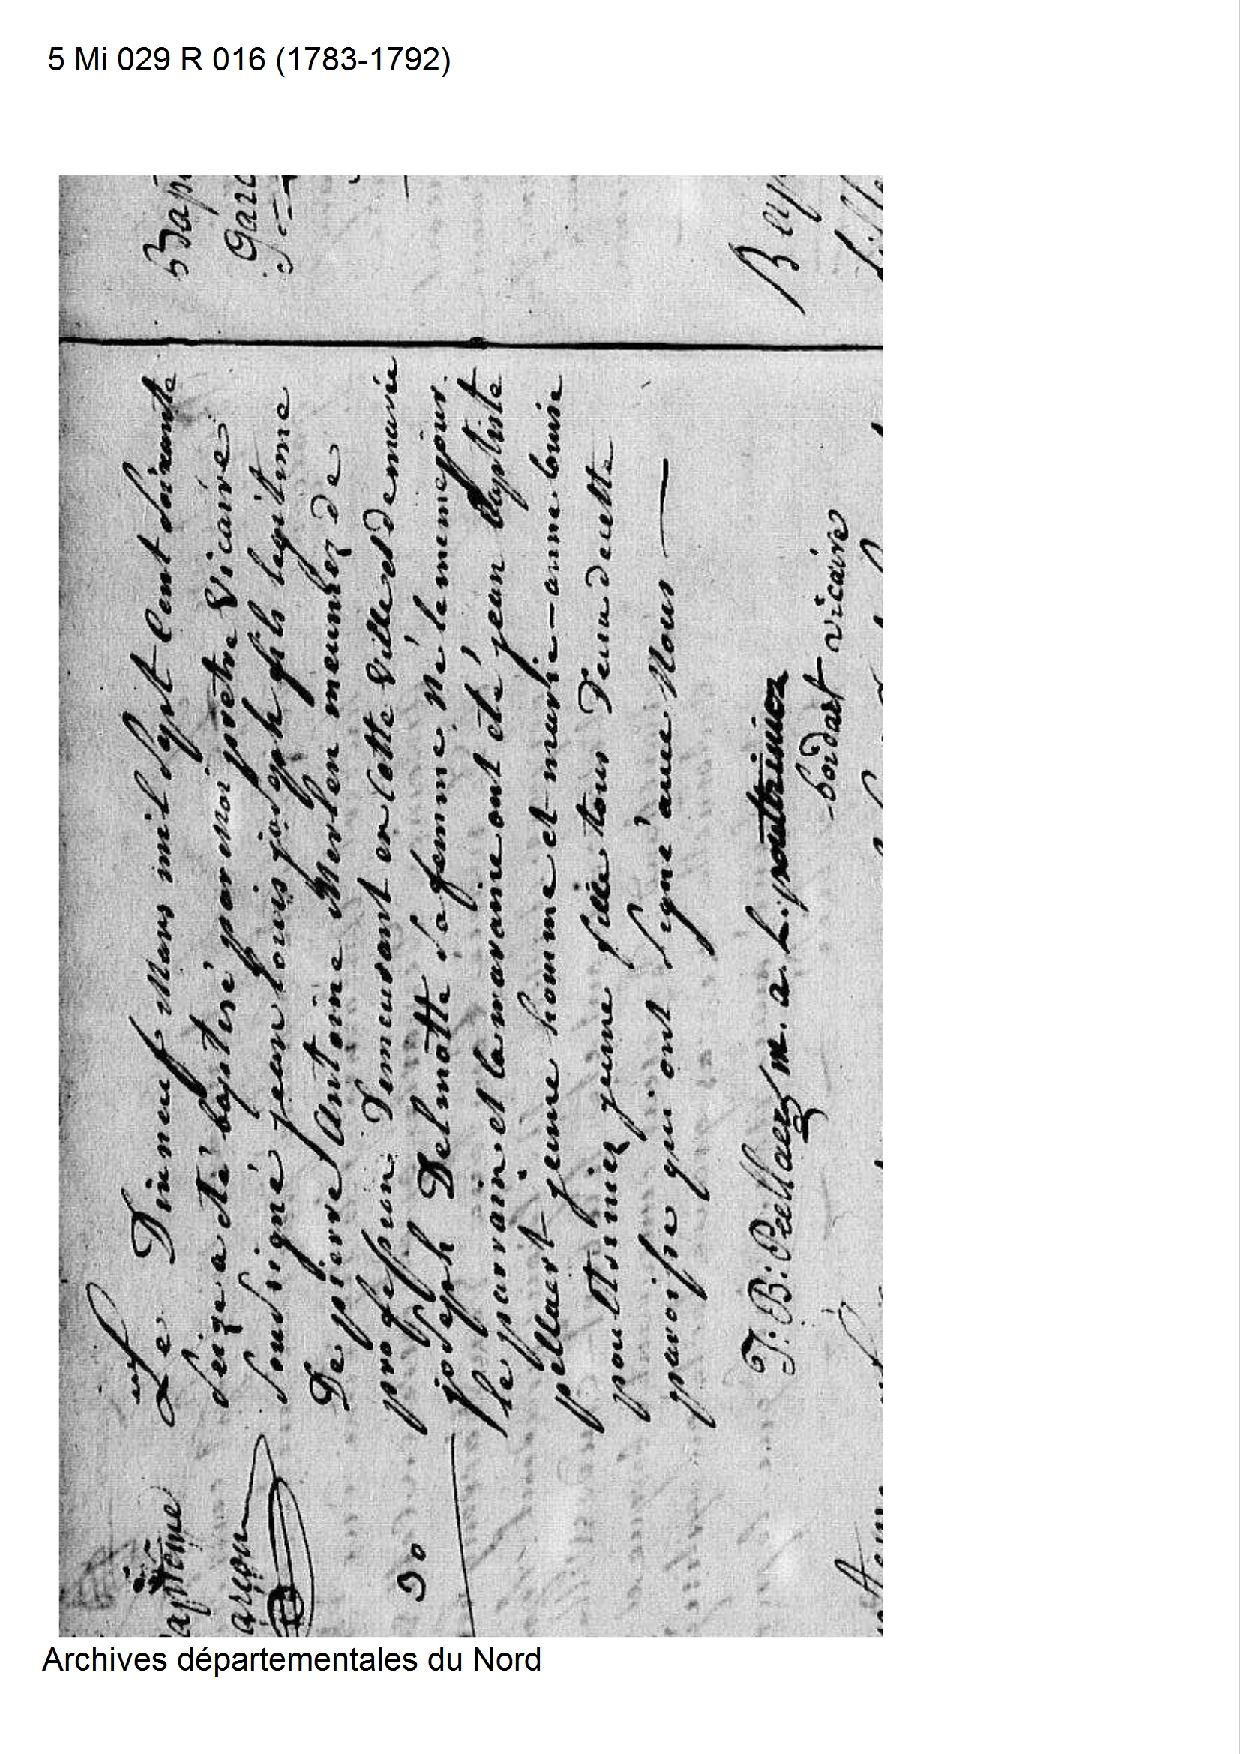 5 Mi 029 R 016 (1783-1792)
Bap
Garc
aptême
arçon
30
Le Dixneuf Mars mil sept Cent soixante
seize a eté baptisé par moi prêtre Vicaire
soussigné jean louis joseph fils legitime
De pierre Antoine Merlen meunier de
profession Demeurant en Cette Ville et De marie
joseph Delmotte sa femme Né le meme jour.
le parrain et la maraine ont eté jean baptiste
pellaert jeune homme et marie-anne louise
jeune fille tous Deux de cette
paroisse qui ont signé avec Nous
J: B: Pellaert m. a. L.
bodart vicaire
Archives départementales du Nord